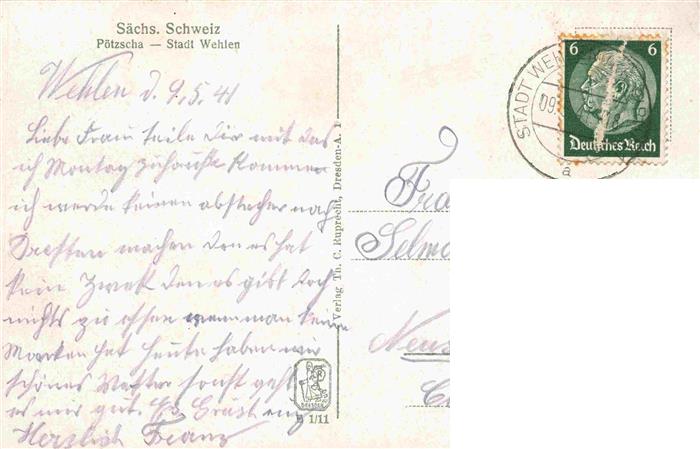 Sächs. Schweiz
Pötzscha — Stadt Wehlen
Wehlen d. 9.5.41
Liebe Frau teile Dir mit das
ich Montag zuhause komme
ich werde keinen abstecher nach
Dresten machen den es hat
kein Zweck den es gibt doch
nichts zu essen wenn man keine
Marken hat Heute haben wir
schönes Wetter sonst geht
es mir gut. Es Grüst
Herzlich Franz
Verlag Th. C. Ruprecht, Dresden-A. 1
DRESDEN
1/11
6 6
Deutsches Reich
STADT WEH
09.
a
Fra
Selm
Neus